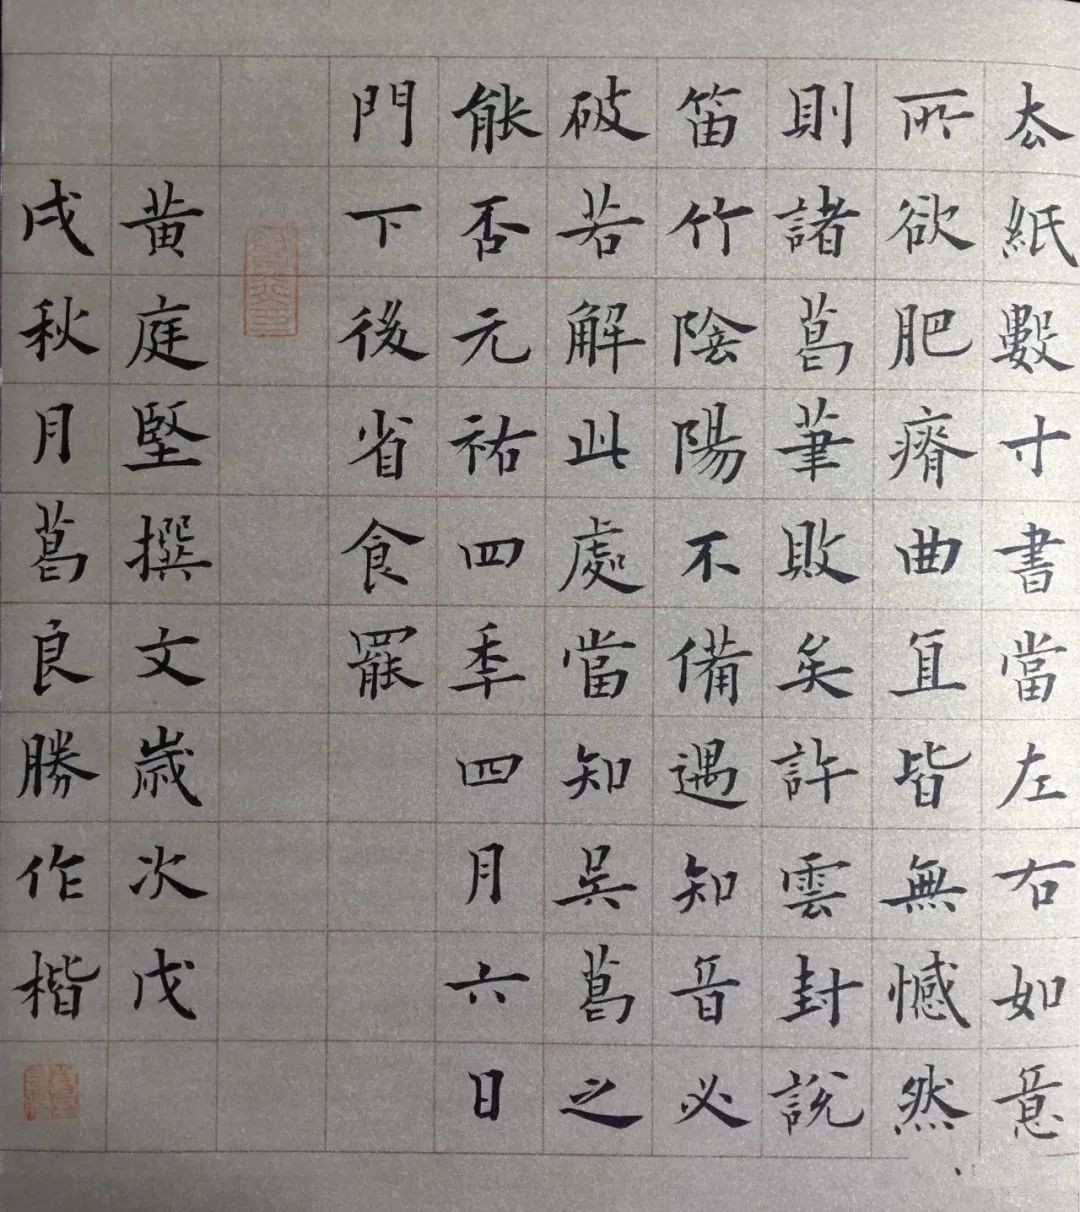 去紙數寸書當左右如意
所欲肥瘠曲直皆無憾然
則諸葛筆敗矣許雲封說
笛竹陰陽不備遇知音必
破若解此處當知吳葛之
能否元祐四季四月六日
門下後省食罷
黃庭堅撰文歲次戊
戌秋月葛良勝作楷